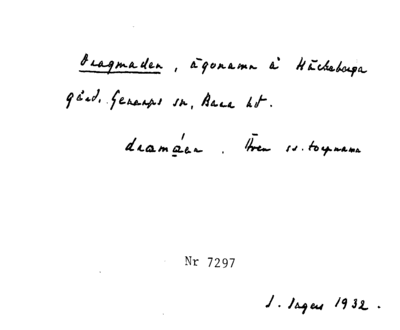 Dragmaden, ägonamn å Häckeberga
gård. Genarps sn, Bara hd.
Även ss. torpnamn
Nr 7297
I. Ingers 1932.